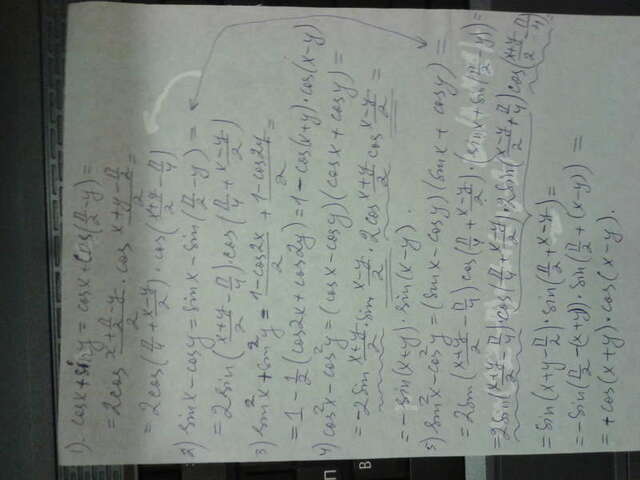 1). cosx + siny = cosx + cos(π/2 - y) =
= 2cos (x + π/2 - y)/2 · cos (x + y - π/2)/2 =
= 2cos(π/4 + (x-y)/2) · cos((x+y)/2 - π/4)
2) sinx - cosy = sinx - sin(π/2 - y) =
= 2sin((x+y)/2 - π/4) cos(π/4 + (x-y)/2)
3) sin²x + sin²y = (1 - cos2x)/2 + (1 - cos2y)/2 =
= 1 - 1/2 (cos2x + cos2y) = 1 - cos(x+y) · cos(x-y)
4) cos²x - cos²y = (cosx - cosy)(cosx + cosy) =
= -2sin (x+y)/2 · sin (x-y)/2 · 2cos (x+y)/2 cos (x-y)/2 =
= -sin(x+y) · sin(x-y).
5) sin²x - cos²y = (sinx - cosy)(sinx + cosy) =
= 2sin((x+y)/2 - π/4) cos(π/4 + (x-y)/2) · (sinx + sin(π/2 - y)) =
= 2sin((x+y)/2 - π/4) cos(π/4 + (x-y)/2) · 2sin((x-y)/2 + π/4) · cos((x+y)/2 - π/4) =
= sin(x+y - π/2) · sin(π/2 + x-y) =
= -sin(π/2 - (x+y)) · sin(π/2 + (x-y)) =
= + cos(x+y) · cos(x-y).